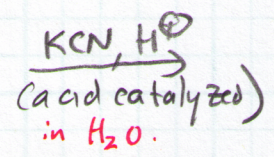 KCN, H⊕
(acid catalyzed)
in H₂O.